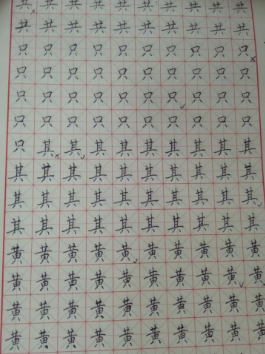 共共共共共共共共共共
共共共共共共共共共共
只只只只只只只只只只
只只只只只只只只只只
只只只只只只只只只只
只只只只只只只只只只
只其其其其其其其其其
其其其其其其其其其其
其其其其其其其其其其
其其其其其其其其其其
黄黄黄黄黄黄黄黄黄黄
黄黄黄黄黄黄黄黄黄黄
黄黄黄黄黄黄黄黄黄黄
黄黄黄黄黄黄黄黄黄黄